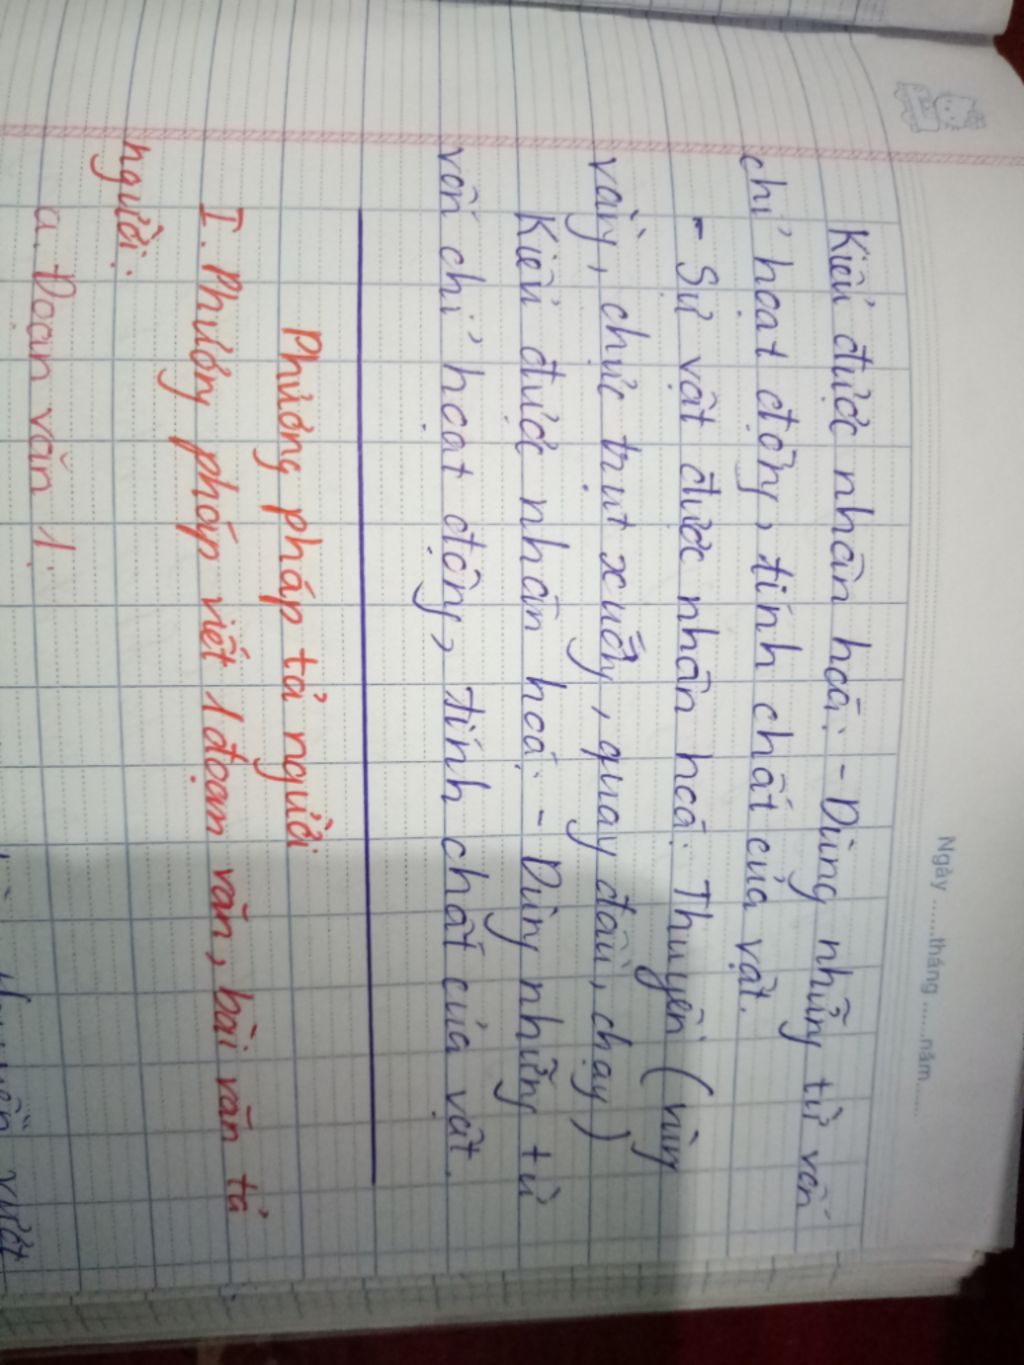 Ngày ........tháng ......năm........
Kiểu được nhân hoá: - Dùng những từ vốn
chỉ hoạt động, tính chất của vật.
- Sự vật được nhân hoá: Thuyền (vùng
vằng, chực trụt xuống, quay đầu, chạy)
Kiểu được nhân hoá: - Dùng những từ
vốn chỉ hoạt động, tính chất của vật.
Phương pháp tả người
I. Phương pháp viết 1 đoạn văn, bài văn tả
người:
a. Đoạn văn 1: